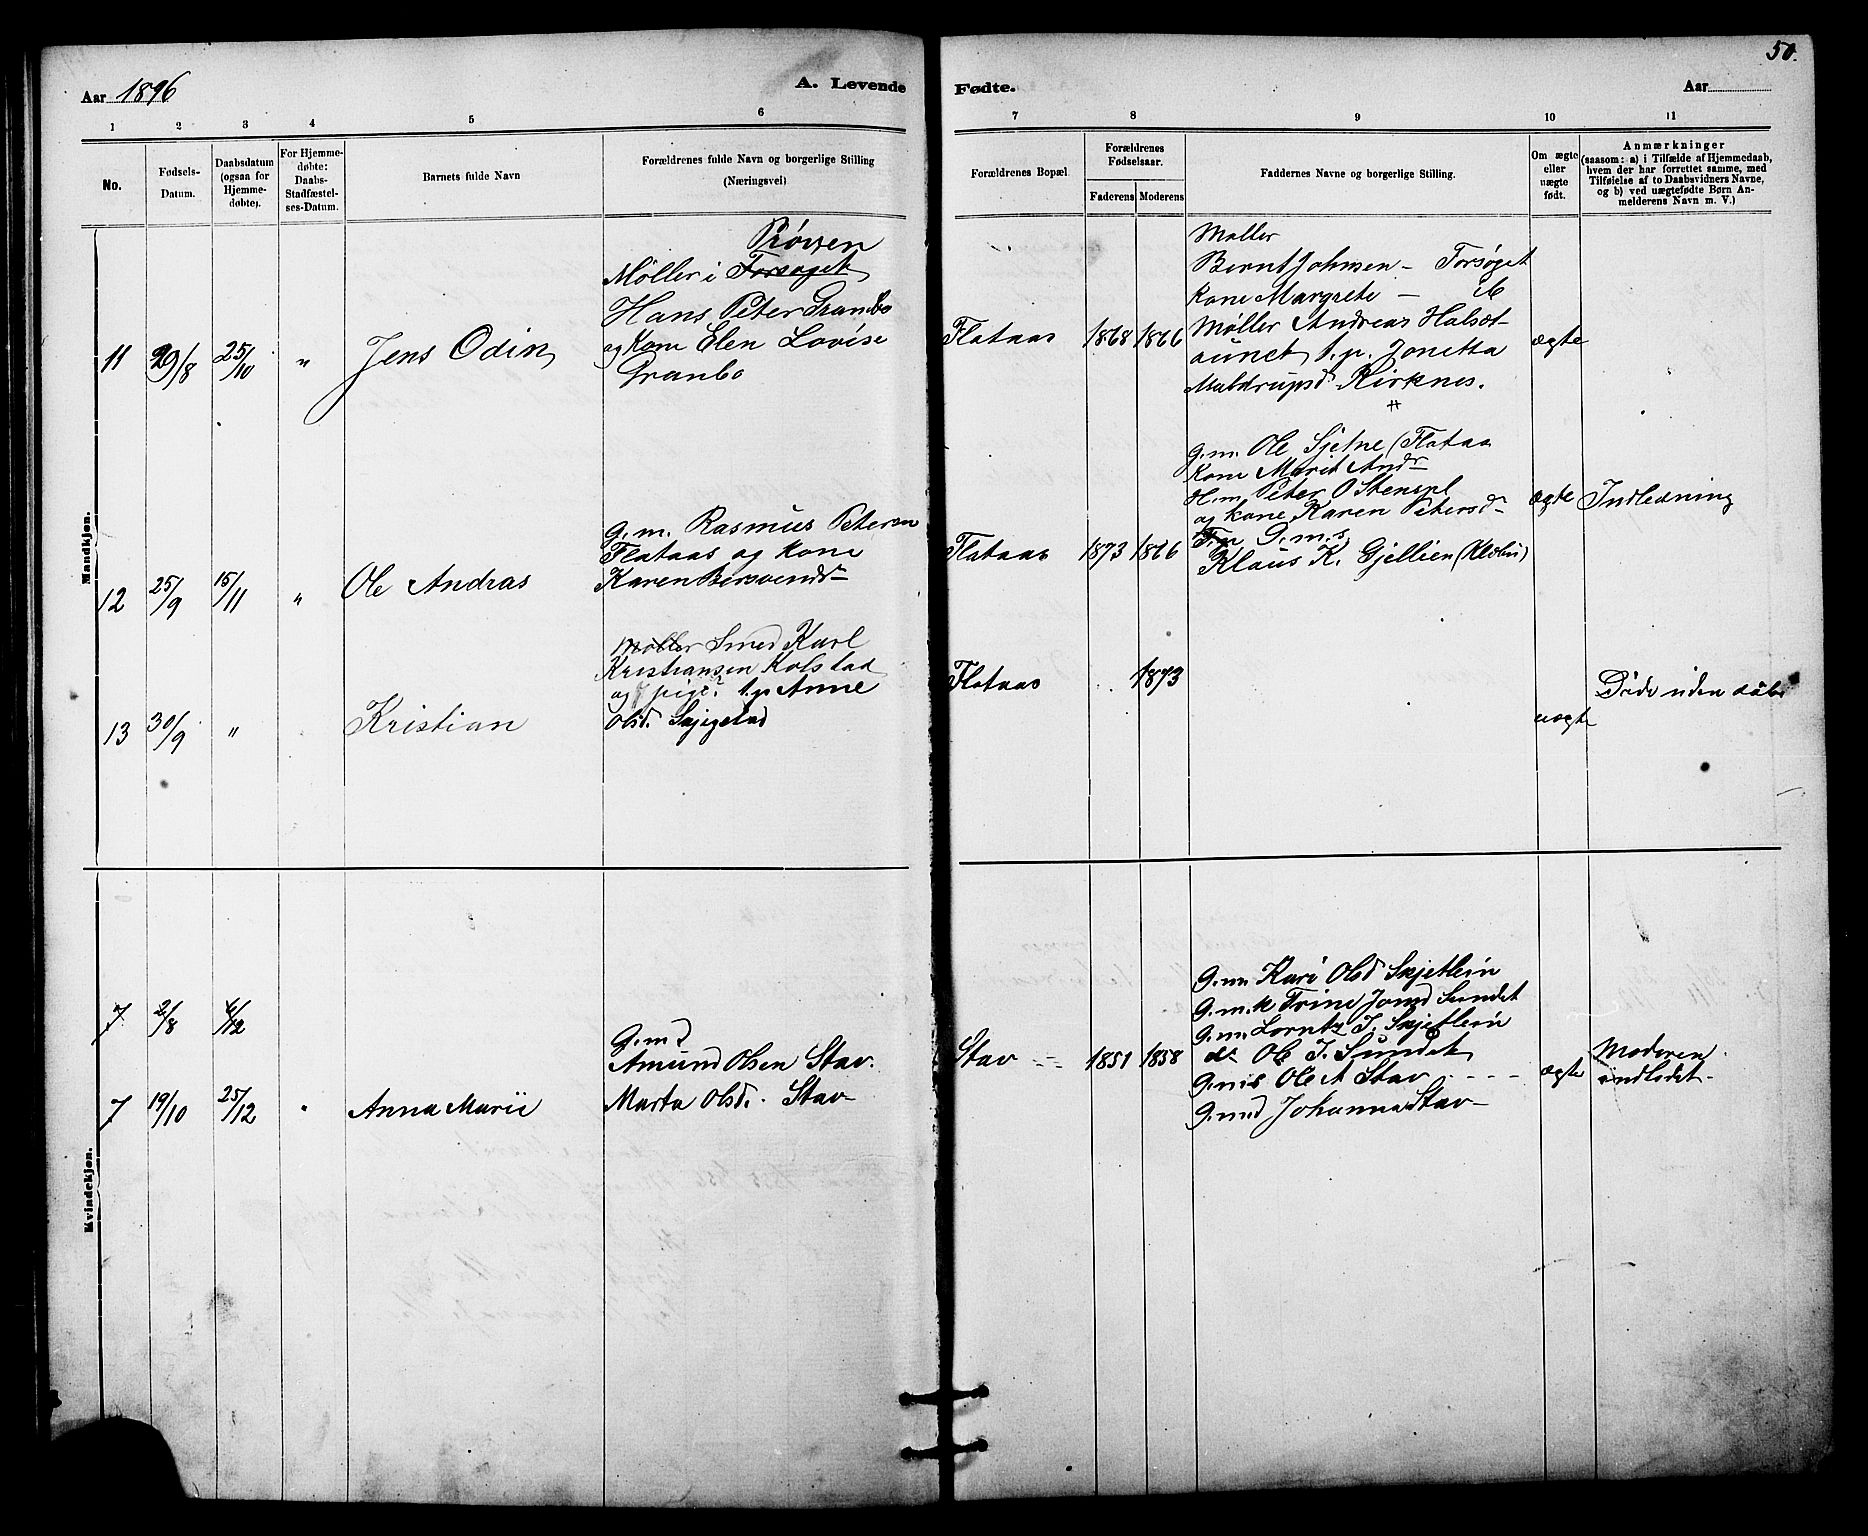 50.
Aar 1896
A. Levende Fødte.
Aar
1 2 3 4 5 6 7 8 9 10 11
No.
Fødsels-Datum.
Daabsdatum (ogsaa for Hjemme-døbte).
For Hjemme-døbte: Daabs-Stadfæstel-ses-Datum.
Barnets fulde Navn
Forældrenes fulde Navn og borgerlige Stilling (Næringsvei)
Forældrenes Bopæl.
Forældrenes Fødselsaar.
Faderens Moderens
Faddernes Navne og borgerlige Stilling.
Om ægte eller uægte født.
Anmærkninger (saasom: a) i Tilfælde af Hjemmedaab, hvem der har forrettet samme, med Tilføielse af to Daabsvidners Navne, og b) ved uægtefødte Børn An-melderens Navn m. V.)
Mandkjøn.
11 29/8 25/10 " Jens Odin
Prøven
Møller i Forsøget
Hans Peter Granbo
og Kone Elen Lovise
Granbo
Flataas 1868 1866
Møller
Bernt Johnsen - Forsøget
Kone Margrete -
Møller Andreas Halset-
aunet t.p. Jonetta
Kirknes.
ægte
12 25/9 15/11 " Ole Andras
G.m. Rasmus Petersen
Flataas og kone
Karen Bersvendsdr
Flataas 1873 1866
G.m. Ole Sjetne (Flataa
Kone Marit Andr
H.m. Peter O Stenspl
og kone Karen Petersd
G.m.s.
Klaus K. Gjellien (Klæbu)
ægte
Indledning
13 30/9 " Kristian
Møller Smed Karl
Kristiansen Kolstad
og pige? t.p. Anne
Olsd.
Flataas 1873
uægte
Døde uden dåb
Kvindekjøn.
7 2/8 6/12
7 19/10 25/12 " Anna Marie
G.m.
Amund Olsen Stav.
Marta Olsd. Stav
Stav 1851 1858
G.m. Kari Olsd Skjetlein
G.m.k Trine Jonsd Sundet
G.m. Lorntz J. Skjetlein
do Ole J. Sundet
Ole A Stav
Johanna Stav
ægte
Moderen
indledet.